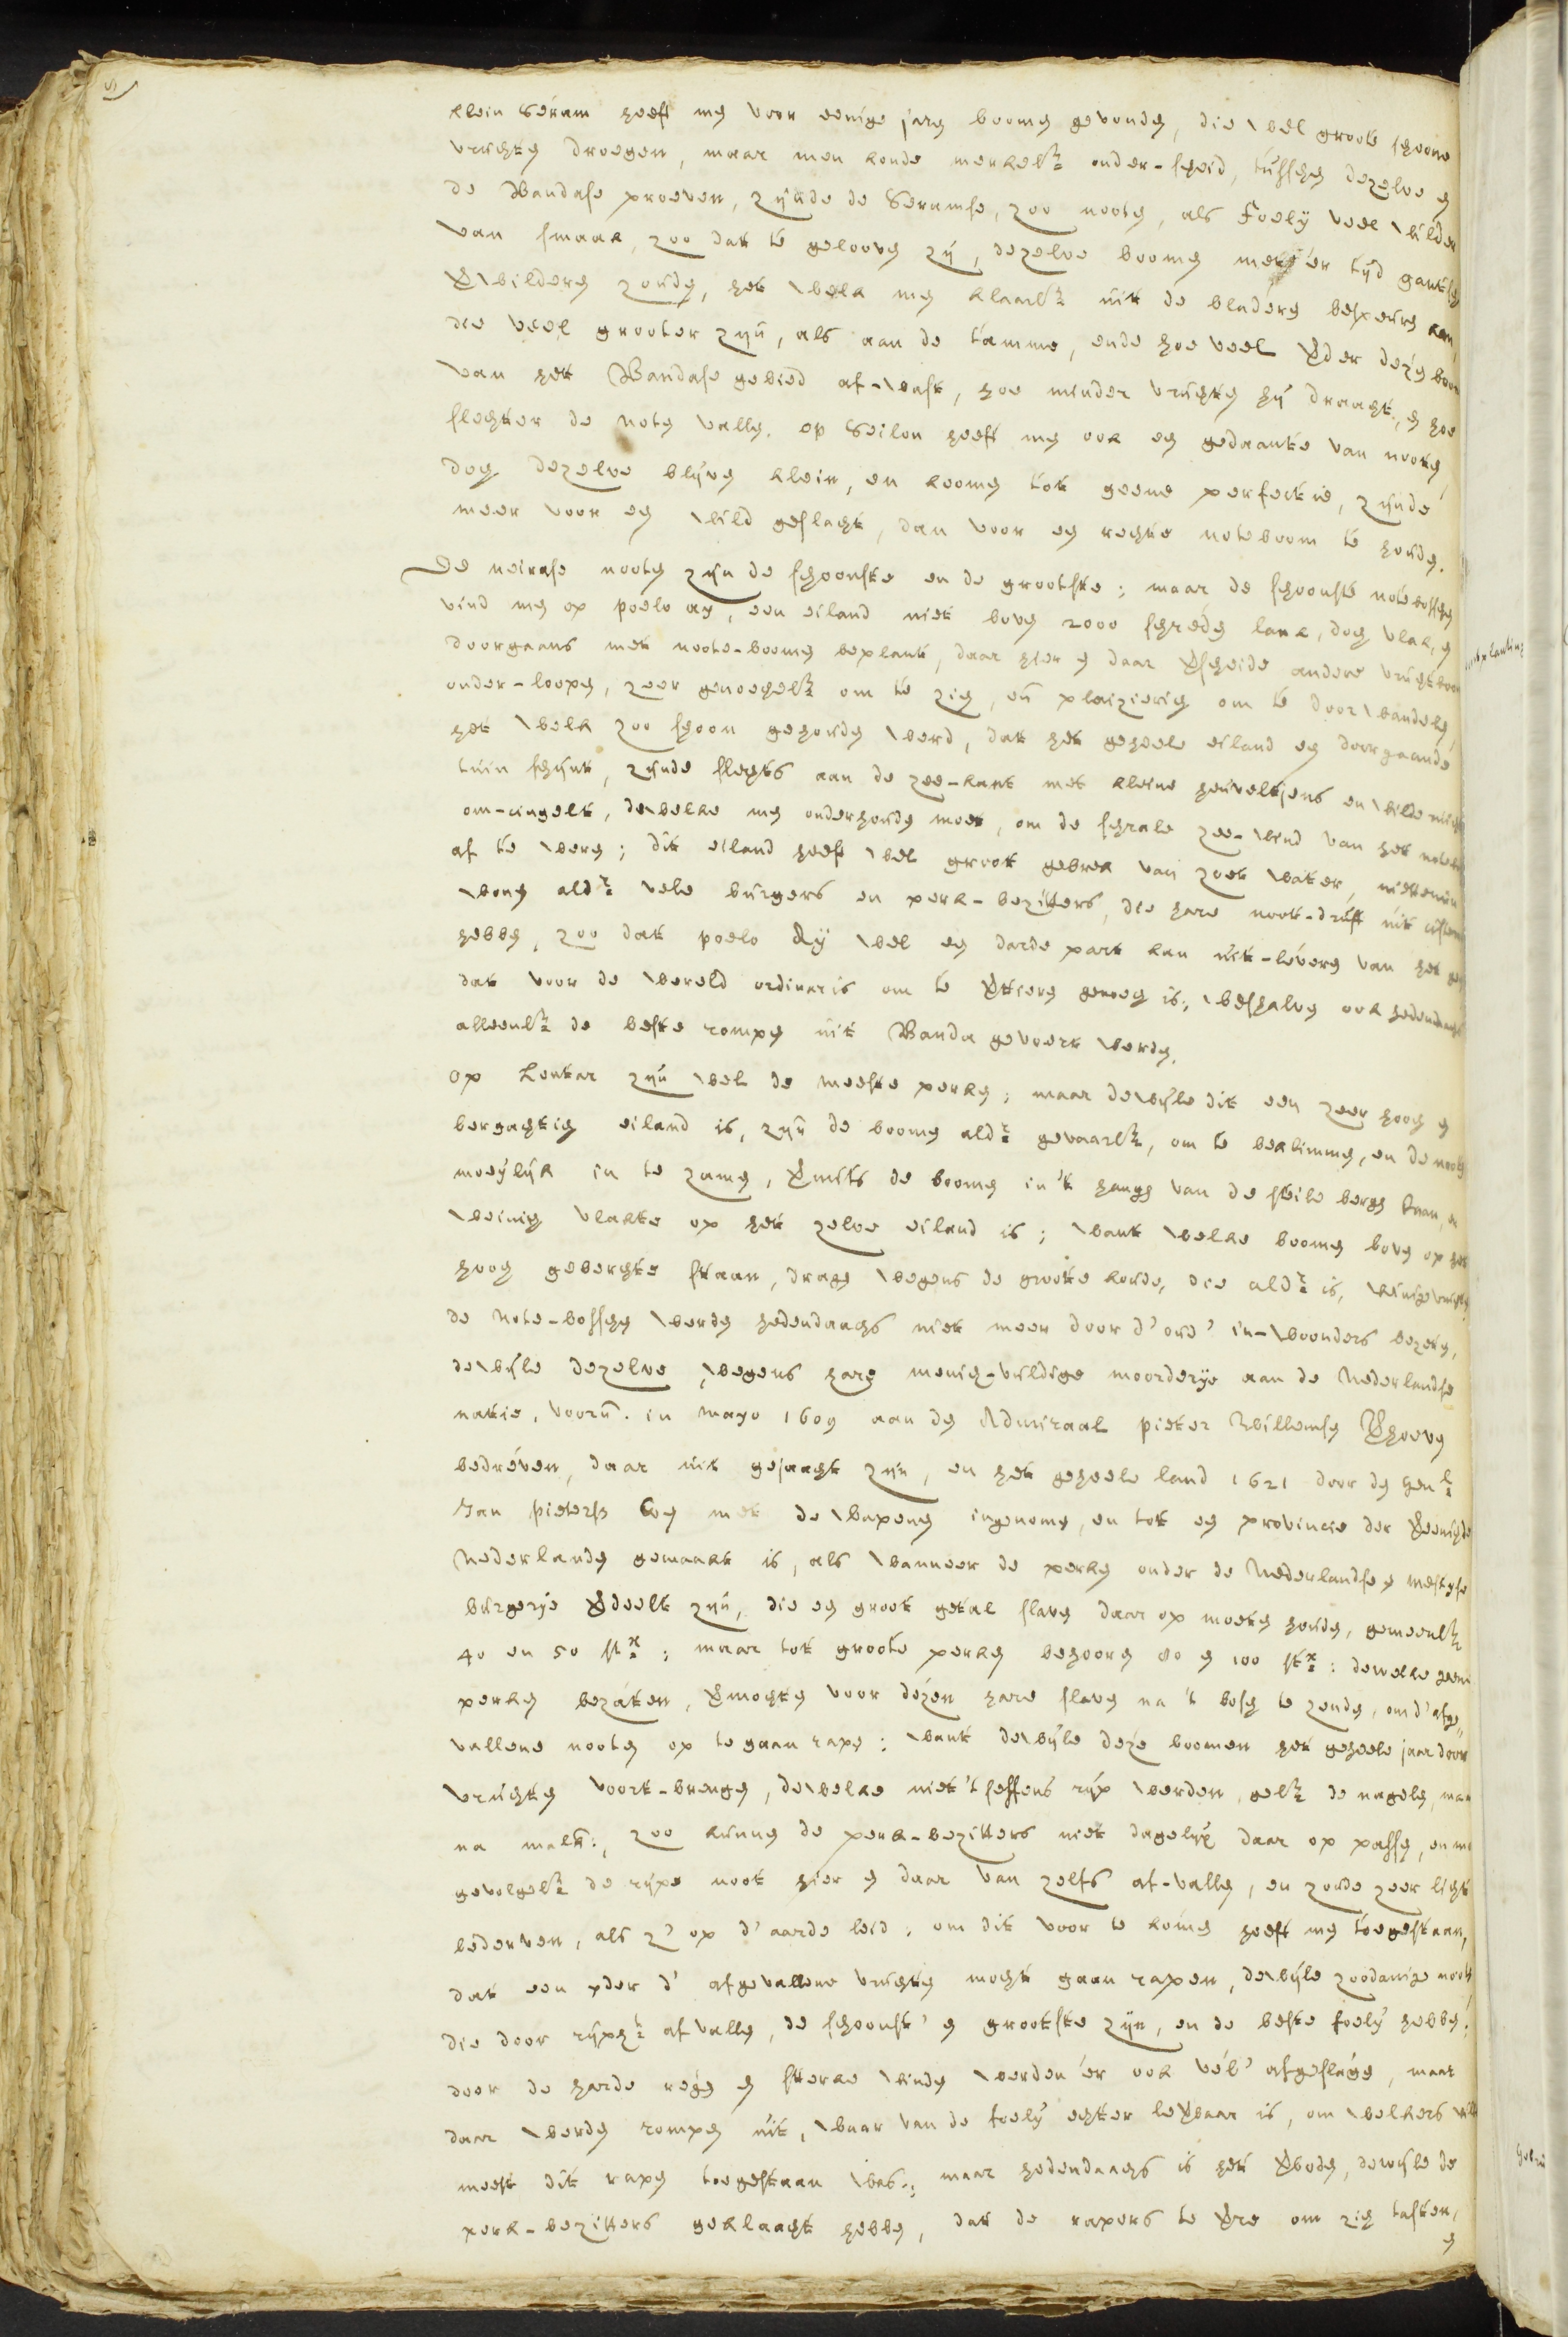 klein Seram heeft men voor eenige jaren boomen gevonden, die wel groote schoone
vruchten droegen, maar men konde merkelk onder-scheid, tusschen dezelve en
de Bandase proeven, zijnde de Seramse, zoo nooten, als Foely veel wilder
van smaak, zoo dat te gelooven zij, dezelve boomen met'er tijd gantsch
verwilderen zouden, het welk men klaarlk uit de bladeren bespeuren kan,
die veel grooter zijn, als aan de tamme, ende hoe veel verder dezen boom
van het Bandase gebied af-wast, hoe minder vruchten hij draagt, en hoe
slechter de noten vallen. op Seilon heeft men ook een gedaante van nooten,
dog dezelve blijven klein, en koomen tot geene perfectie, zijnde
meer voor een wild geslacht, dan voor een rechte noteboom te houden.
De neirase nooten zijn de schoonste en de grootste; maar de schoonste notebosschen
vind men op poelo ay, een eiland niet boven 2000 schreden lank, doch vlak, en
doorgaans met noote-boomen beplant, daar hier en daar verscheide andere vruchtboomen
onder-loopen, zeer genoechelk om te zien, en plaizierich om te doorwandelen,
het welk zoo schoon gehouden werd, dat het geheele eiland een doorgaande
tuin schijnt, zijnde slechts aan de zee-kant met kleine heuveltjens en wildernisse
om-cingelt, dewelke men onderhouden moet, om de schrale zee-wind van het
af te weren; dit eiland heeft wel groot gebrek van zoet water, niettemin
wonen aldr vele burgers en perk-bezitters, die hare noot-druft uit
hebben, zoo dat poelo Ay wel een darde part kan uit-leveren van het
dat voor de wereld ordinaris om te verteren genoeg is; weshalven ook hedendaags
alleenlk de beste rompen uit Banda gevoert werden.
Op Lontar zijn wel de meeste perken; maar dewijle dit een zeer hooch en
bergachtich eiland is, zijn de boomen aldr gevaarlk, om te beklimmen, en de nooten
moeylijk in te zamen, vermits de boomen in 't hangen van de steile bergen staan,
weinig vlakte op het zelve eiland is; want welke boomen boven op het
hoog geberchte staan, dragen wegens de groote koude, die aldr is, weinige vruchten.
de Note-bosschen werden hedendaachs niet meer door d' oude in-woonders bezeten,
dewijle dezelve, wegens hare menich-vuldige moorderije aan de Nederlandse
natie, voorn. in mayo 1609 aan den Admiraal pieter Willemsen Verhoeven
bedreven, daar uit gejaacht zijn, en het geheele land 1621 door den Genl
Jan pietersz Coen met de wapenen ingenomen, en tot een provincie der Vereenichde
Nederlanden gemaakt is, als wanneer de perken onder de Nederlandse en mestyse
burgerije verdeelt zijn, die een groot getal slaven daar op moeten houden, gemeenlk
40 en 50 stx; maar tot groote perken behooren 80 en 100 stx: dewelke geene
perken bezaten, vermochten voor dezen hare slaven na 't bosch te zenden, om d' afge=
vallene nooten op te gaan rapen; want dewijle deze boomen het geheele jaar door
vruchten voort-brengen, dewelke niet 't seffens rijp werden, gelk de nagelen, maar
na malk:, zoo kunnen de perk-bezitters niet dagelijx daar op passen, en
gevolgelk de rijpe noot hier en daar van zelfs af-vallen, en zoude zeer licht
bederven, als z' op d' aarde leid; om dit voor te komen heeft men toegestaan,
dat een yder d' afgevallene vruchten mocht gaan rapen, dewijle zoodanige nooten
die door rijpht af vallen, de schoonst' en grootste zijn, en de beste foely hebben;
door de harde regen en sterke winden werden 'er ook vel' afgeslagen, maar
daar werden rompen uit, waar van de foely echter leverbaar is, om welkers wille
meest dit rapen toegestaan was; maar hedendaachs is het verboden, dewijle de
perk-bezitters geklaacht hebben, dat de rapers te verre om zich tasten,
en